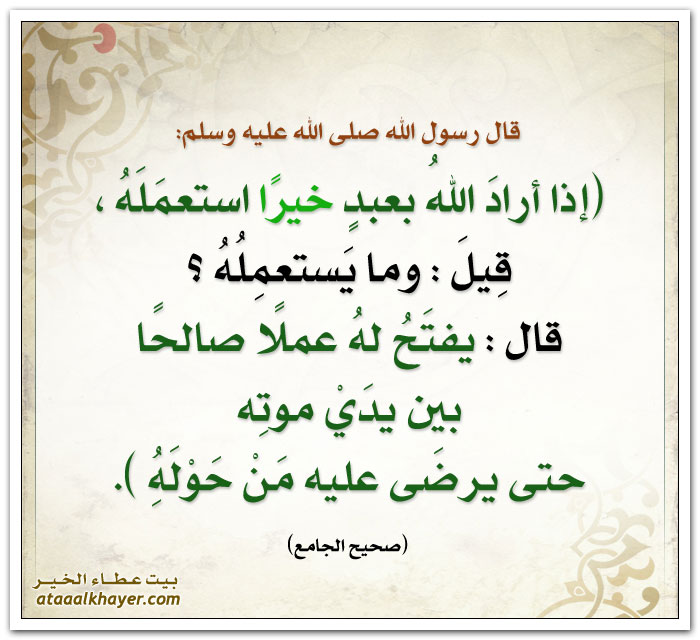 قال رسول الله صلى الله عليه وسلم:
(إذا أرادَ اللهُ بعبدٍ خيرًا استعمَلَهُ ،
قِيلَ : وما يَستعمِلُهُ ؟
قال : يفتَحُ لهُ عملًا صالحًا
بين يدَيْ موتِه
حتى يرضَى عليه مَنْ حَوْلَهُ ).
(صحيح الجامع)
بيت عطاء الخير
ataaalkhayer.com